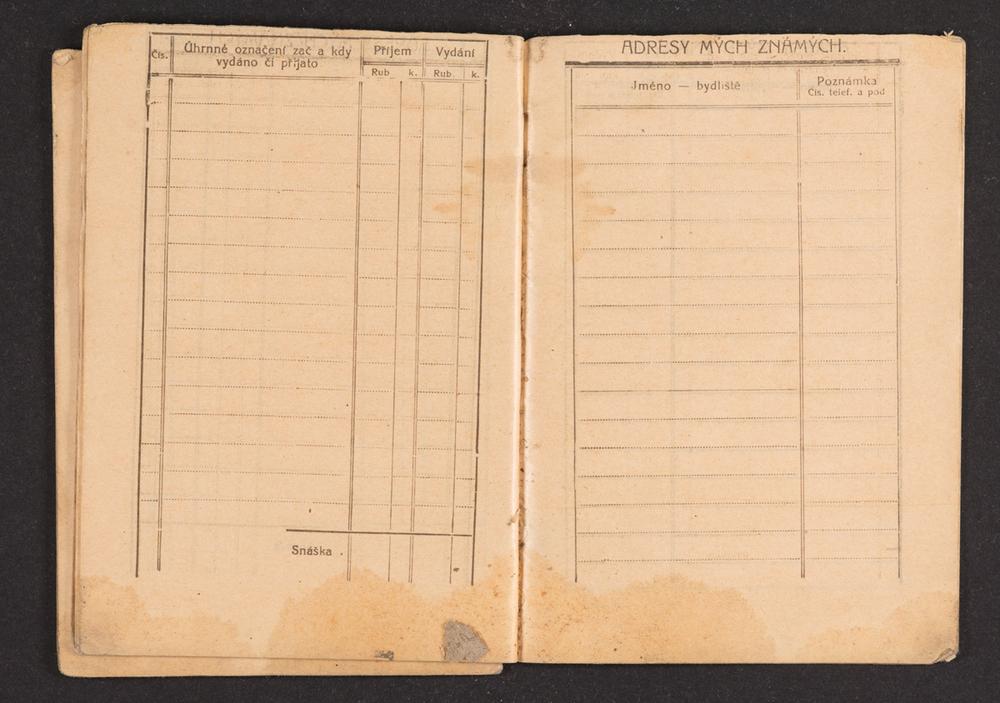 Čís.
Úhrnné označení zač a kdy
vydáno či přijato
Příjem
Vydání
Rub
k.
Rub.
k.
Snáška
ADRESY MÝCH ZNÁMÝCH.
Jméno — bydliště
Poznámka
Čís. telef. a pod